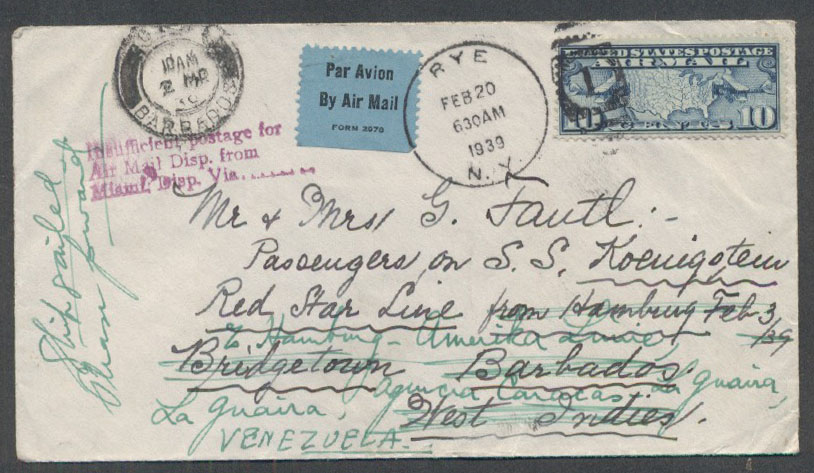 BARBADOS
10AM
2 MR
39
Par Avion
By Air Mail
FORM 2978
RYE
FEB 20
630AM
1939
N.Y.
UNITED STATES POSTAGE
AIR MAIL
10
Insufficient postage for
Air Mail Disp. from
Miami, Disp. Via
Ship sailed
Please forward
Mr & Mrs G. Fautl:-
Passengers on S.S. Koenigstein
Red Star Line from Hamburg Feb 3/39
c/o Hamburg-Amerika Linie,
Bridgetown Barbados
Agencia Caracas, La Guaira,
West Indies
La Guaira,
VENEZUELA.